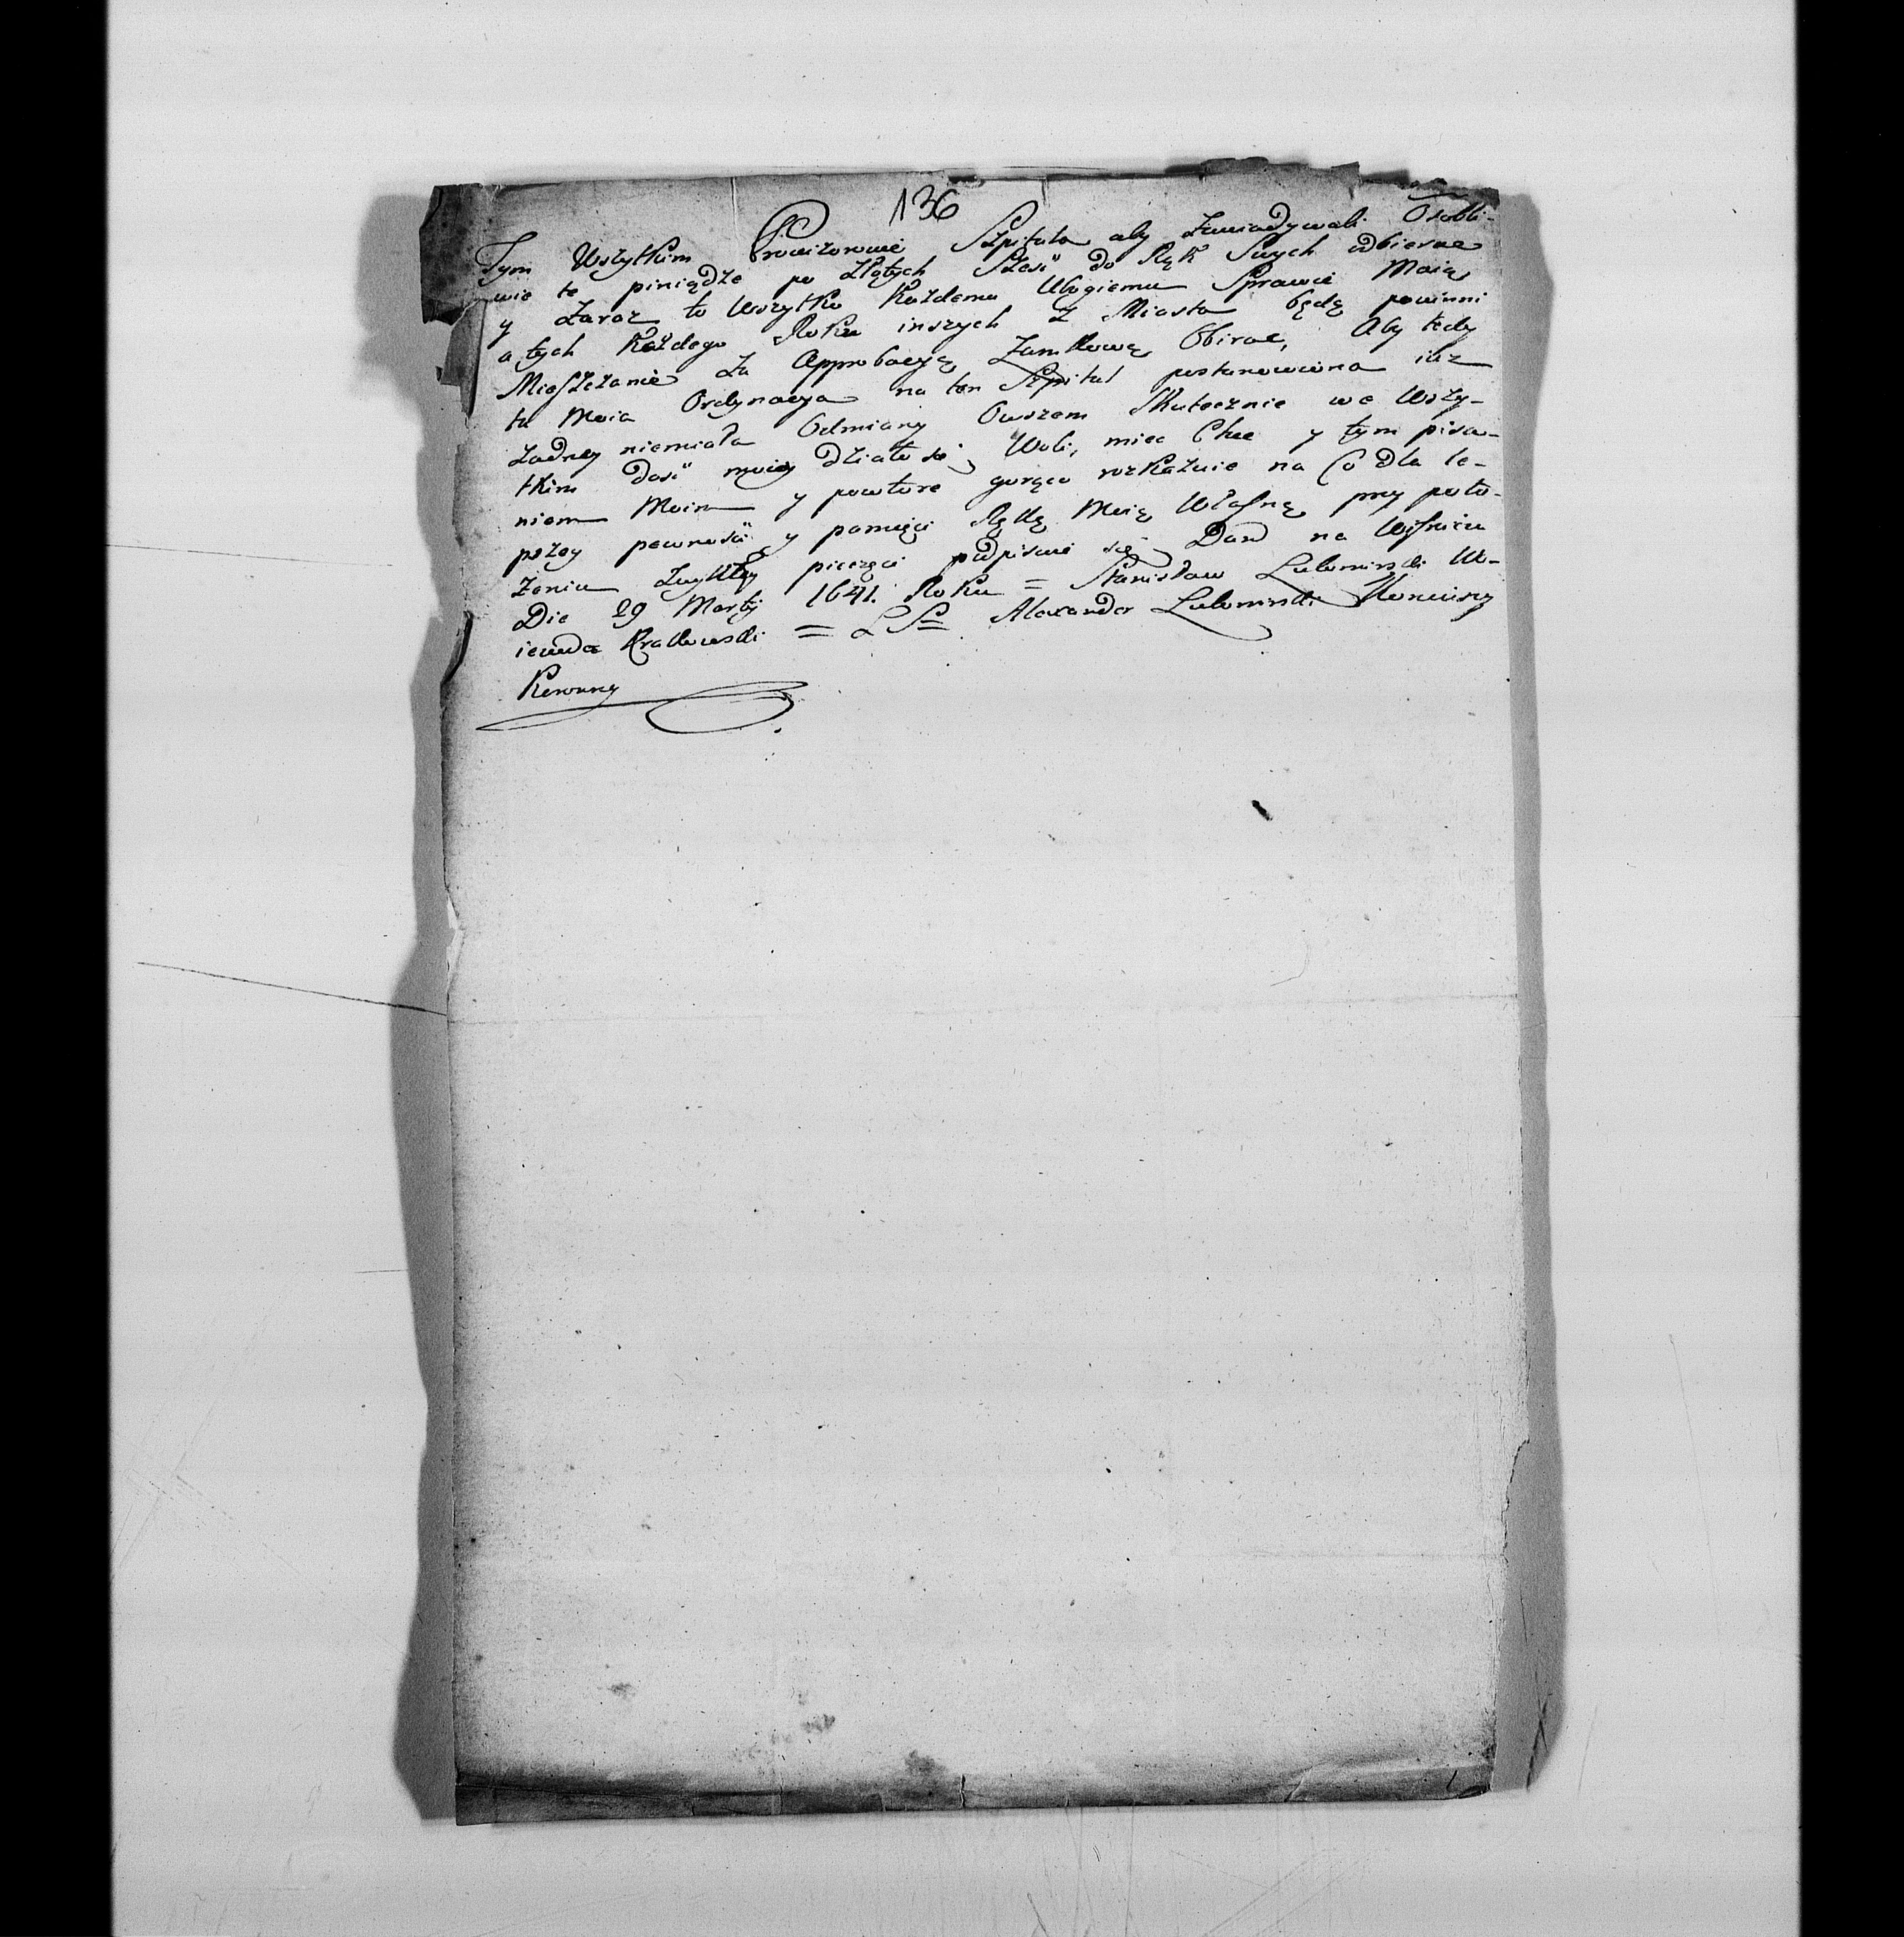 136
Tym Wszytkim Prowizorowie Szpitala aby Zawiadywali Osobli-
wie te piniądze po Złotych Sześć do Rąk Swych odbierac
y Zaraz to Wszytko Każdemu Ubogiemu Sprawic Maią
a tych Każdego Roku inszych z Miasta będę powinni
Mieszczanie za Approbacyą Zamkową Obirac, Aby tedy
ta Moia Ordynacya na ten Szpital postanowiona iuz
żadney niemiała Odmiany Owszem Skutecznie we Wszy-
tkim dosć moiey działo się Woli, miec Chce y tym pisa-
niem Moim y powtore gorąco rozkazuie na Co dla le-
pszey pewnosci y pamięci Ręką Moią Własną przy poło-
żeniu Zwykłey pieczęci podpisuie się Dan na Wisniczu
Die 29 Martij 1641. Roku = Stanisław Lubomirski Wo-
iewoda Krakowski = LS = Alexander Lubomirski Koniuszy
Koronny